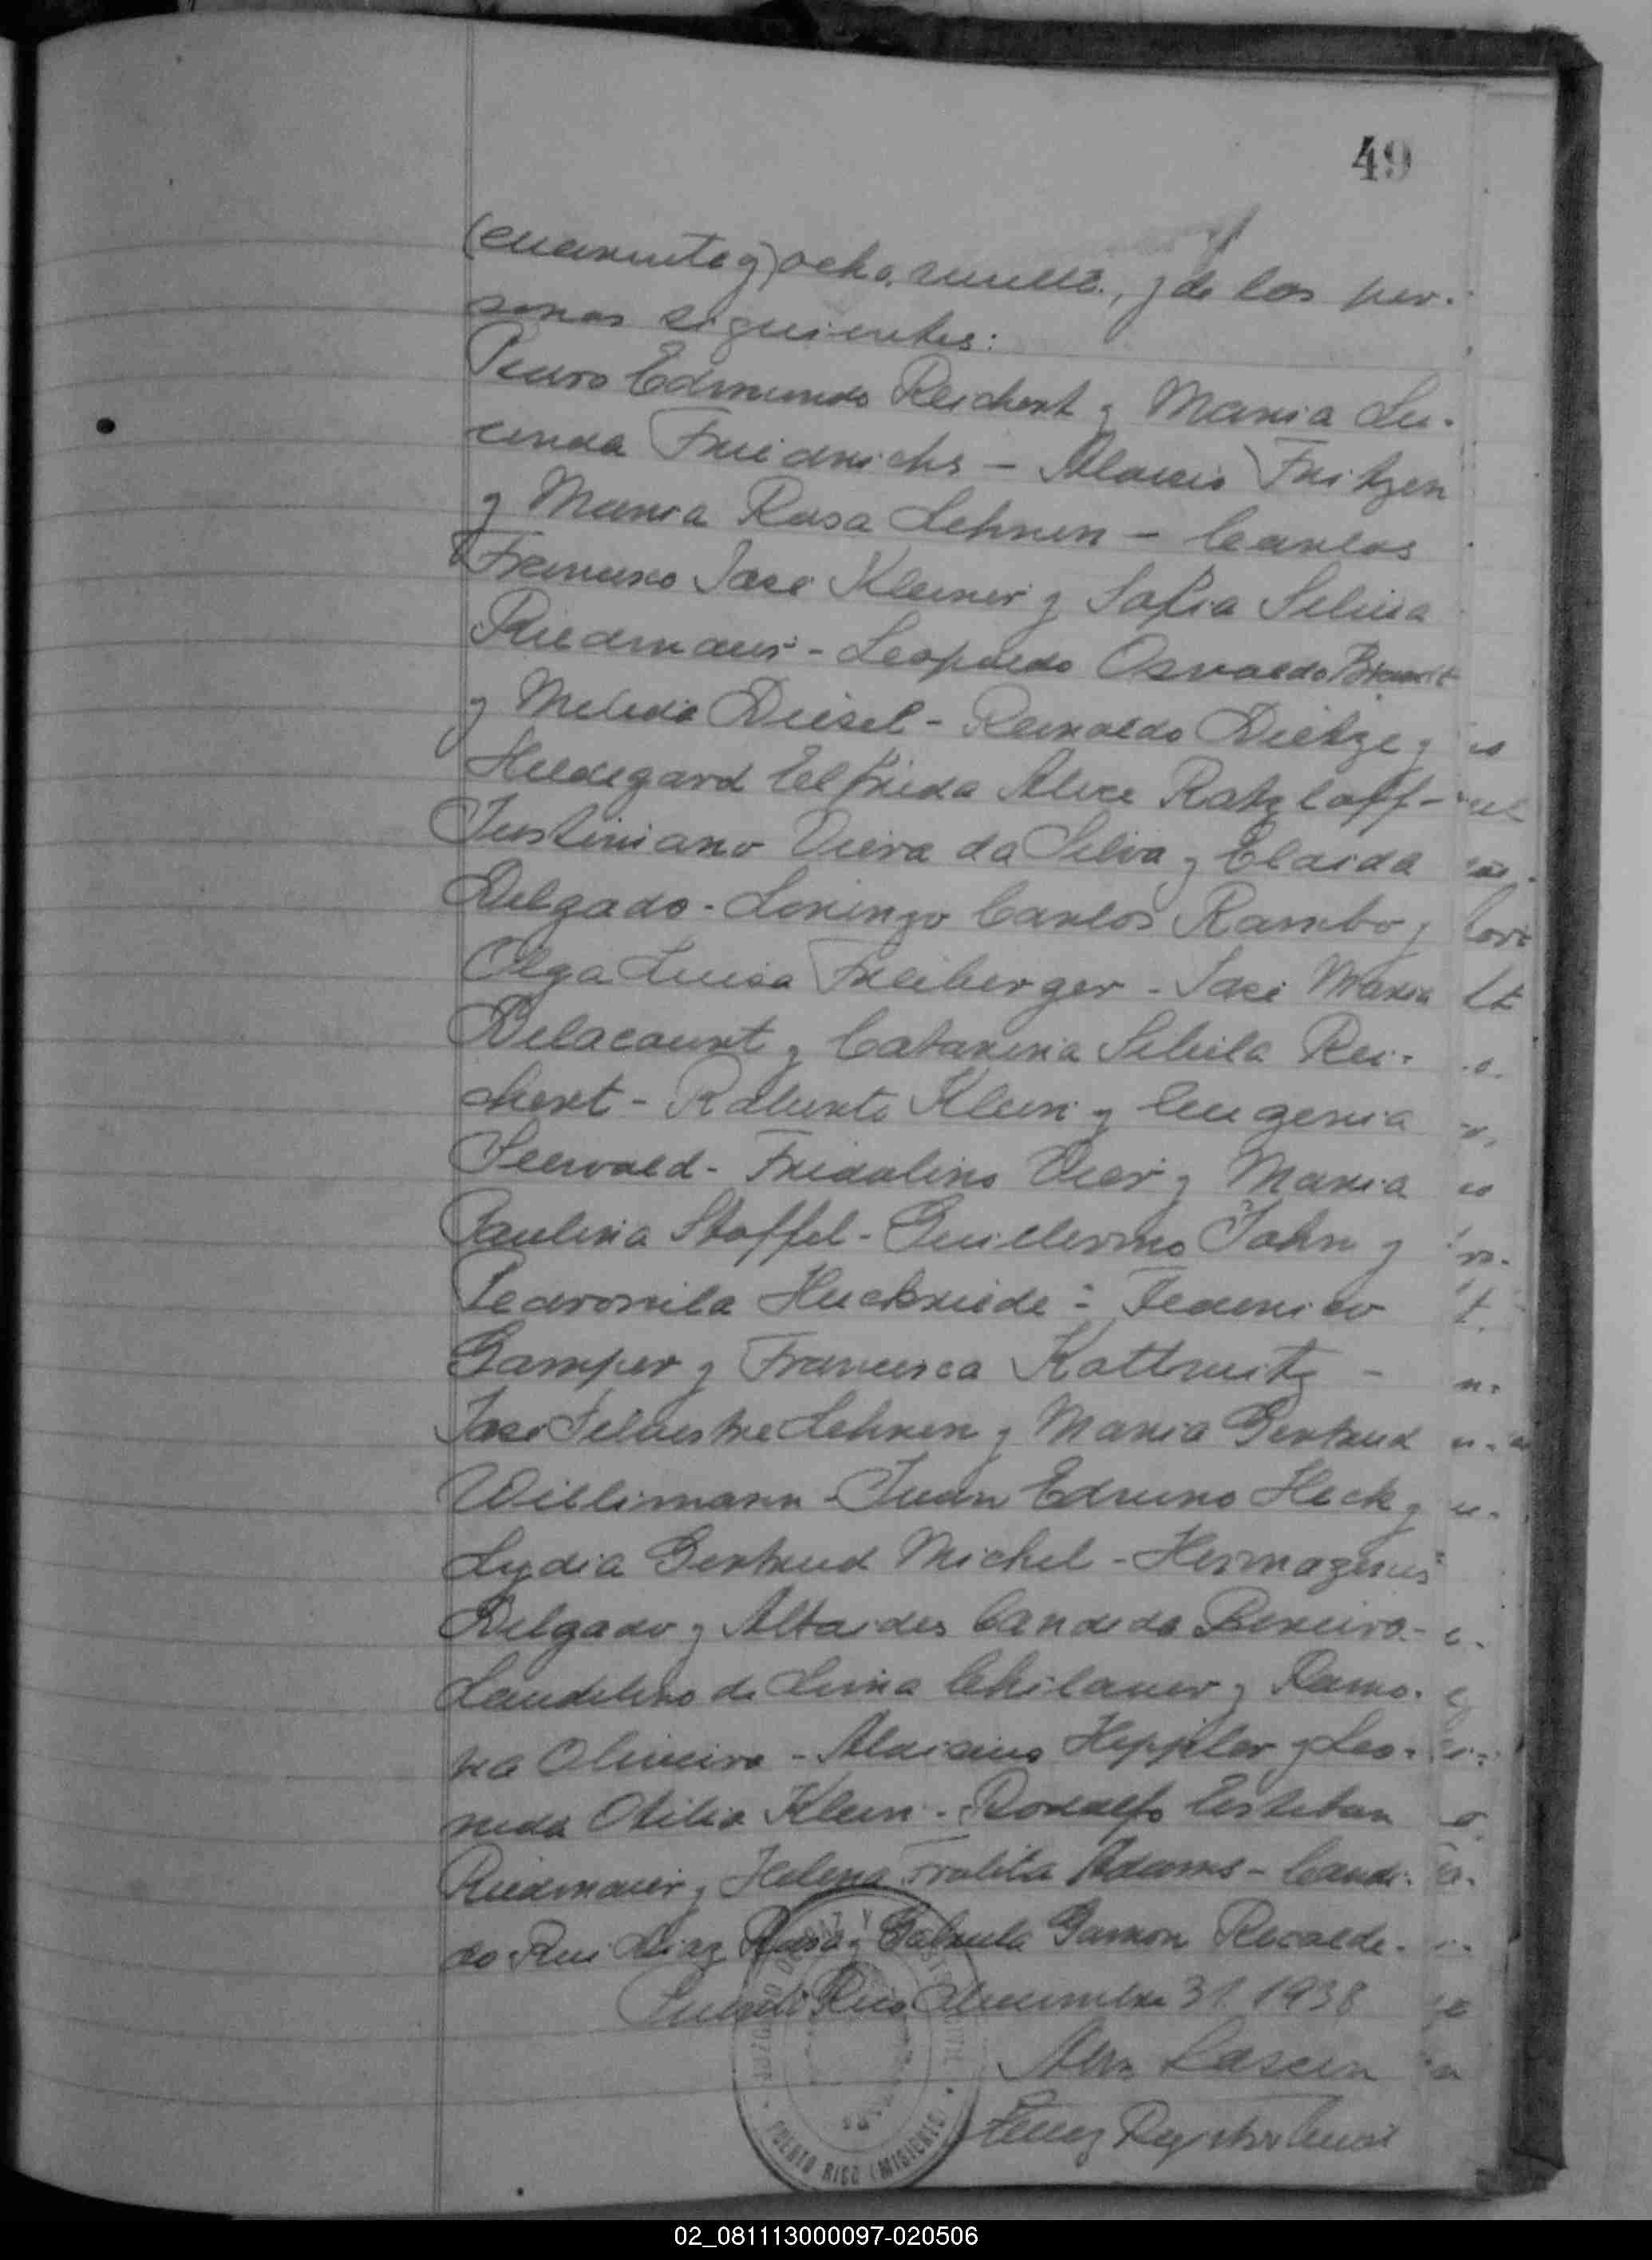 49
(cuarenta y) ocho, , y de las per-
sonas siguientes:
Pedro Edmundo Reichert y Maria Lu-
cinda Friedrichs - Aloisio Fritzen
y Maria Rosa Lehnen - Carlos
Francisco José Kleiner y Sofia Silvia
Riedmaier - Leopoldo Osvaldo Brandt
y Melida Diesel - Reinaldo Dietze y
Hildegard Elfrieda Alice Ratzlaff -
Justiniano Vieira da Silva y Elaida
Delgado - Lorenzo Carlos Rambo y
Olga Luisa Freiberger - José Maria
Delacourt y Catarina Sibila Rei-
chert - Roberto Klein y Eugenia
Seewald - Fridolino Vier y Maria
Paulina Stoffel - Guillermo Jahn y
Pedronila Huckriede - Federico
Gamper y Francisca Kottwitz -
José Silvestre Lehnen y Maria Gertrud
Willimann - Juan Edvino Heck y
Lydia Gertrud Michel - Hermogenes
Delgado y Altaides Candida Pereira -
Laudelino de Lima y Ramo-
na Oliveira - Aloisius Heppler y Leo-
nida Otilia Klein - Rodolfo Esteban
Riedmaier y Helena Adams - Candi-
do Diaz Rosa y Gamon Recalde.
Puerto Rico Diciembre 31. 1938
Registro Civil
PUERTO RICO (MISIONES)
02_081113000097-020506